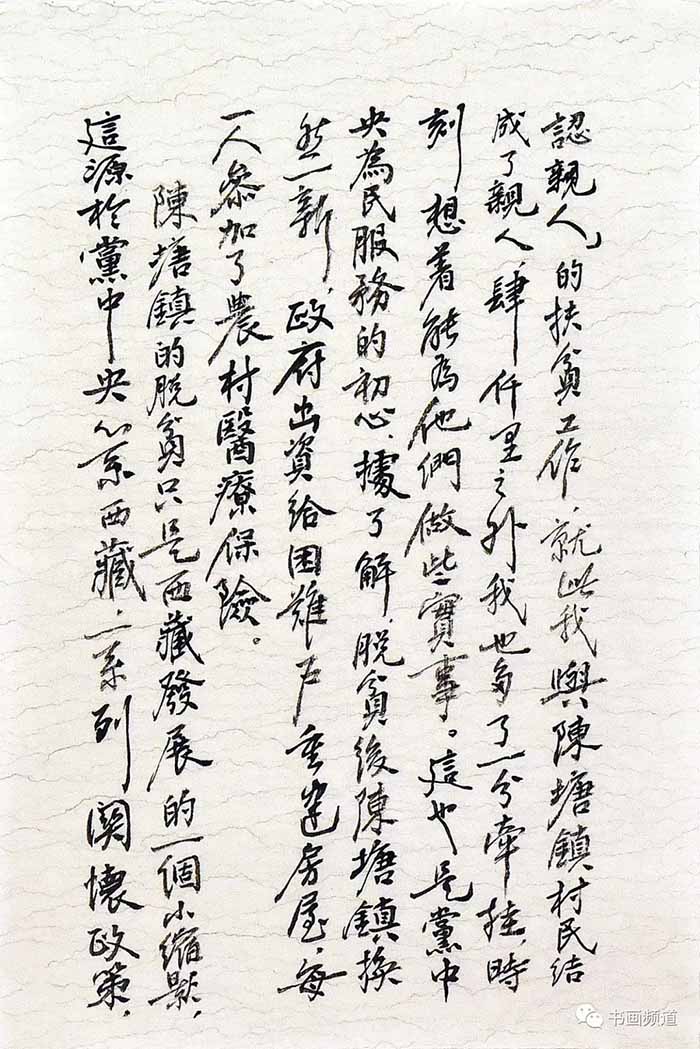 認親人」的扶貧工作，就此我與陳塘鎮村民結
成了親人，肆仟里之外我也多了一分牽挂，時
刻想着能爲他們做些實事。這也是黨中
央為民服務的初心，據了解，脫貧後陳塘鎮換
然一新，政府出資給困難戶重建房屋，每
一人參加了農村醫療保險。
陳塘鎮的脫貧只是西藏發展的一個小縮影，
這源於黨中央心系西藏，一系列關懷政策，
书画频道